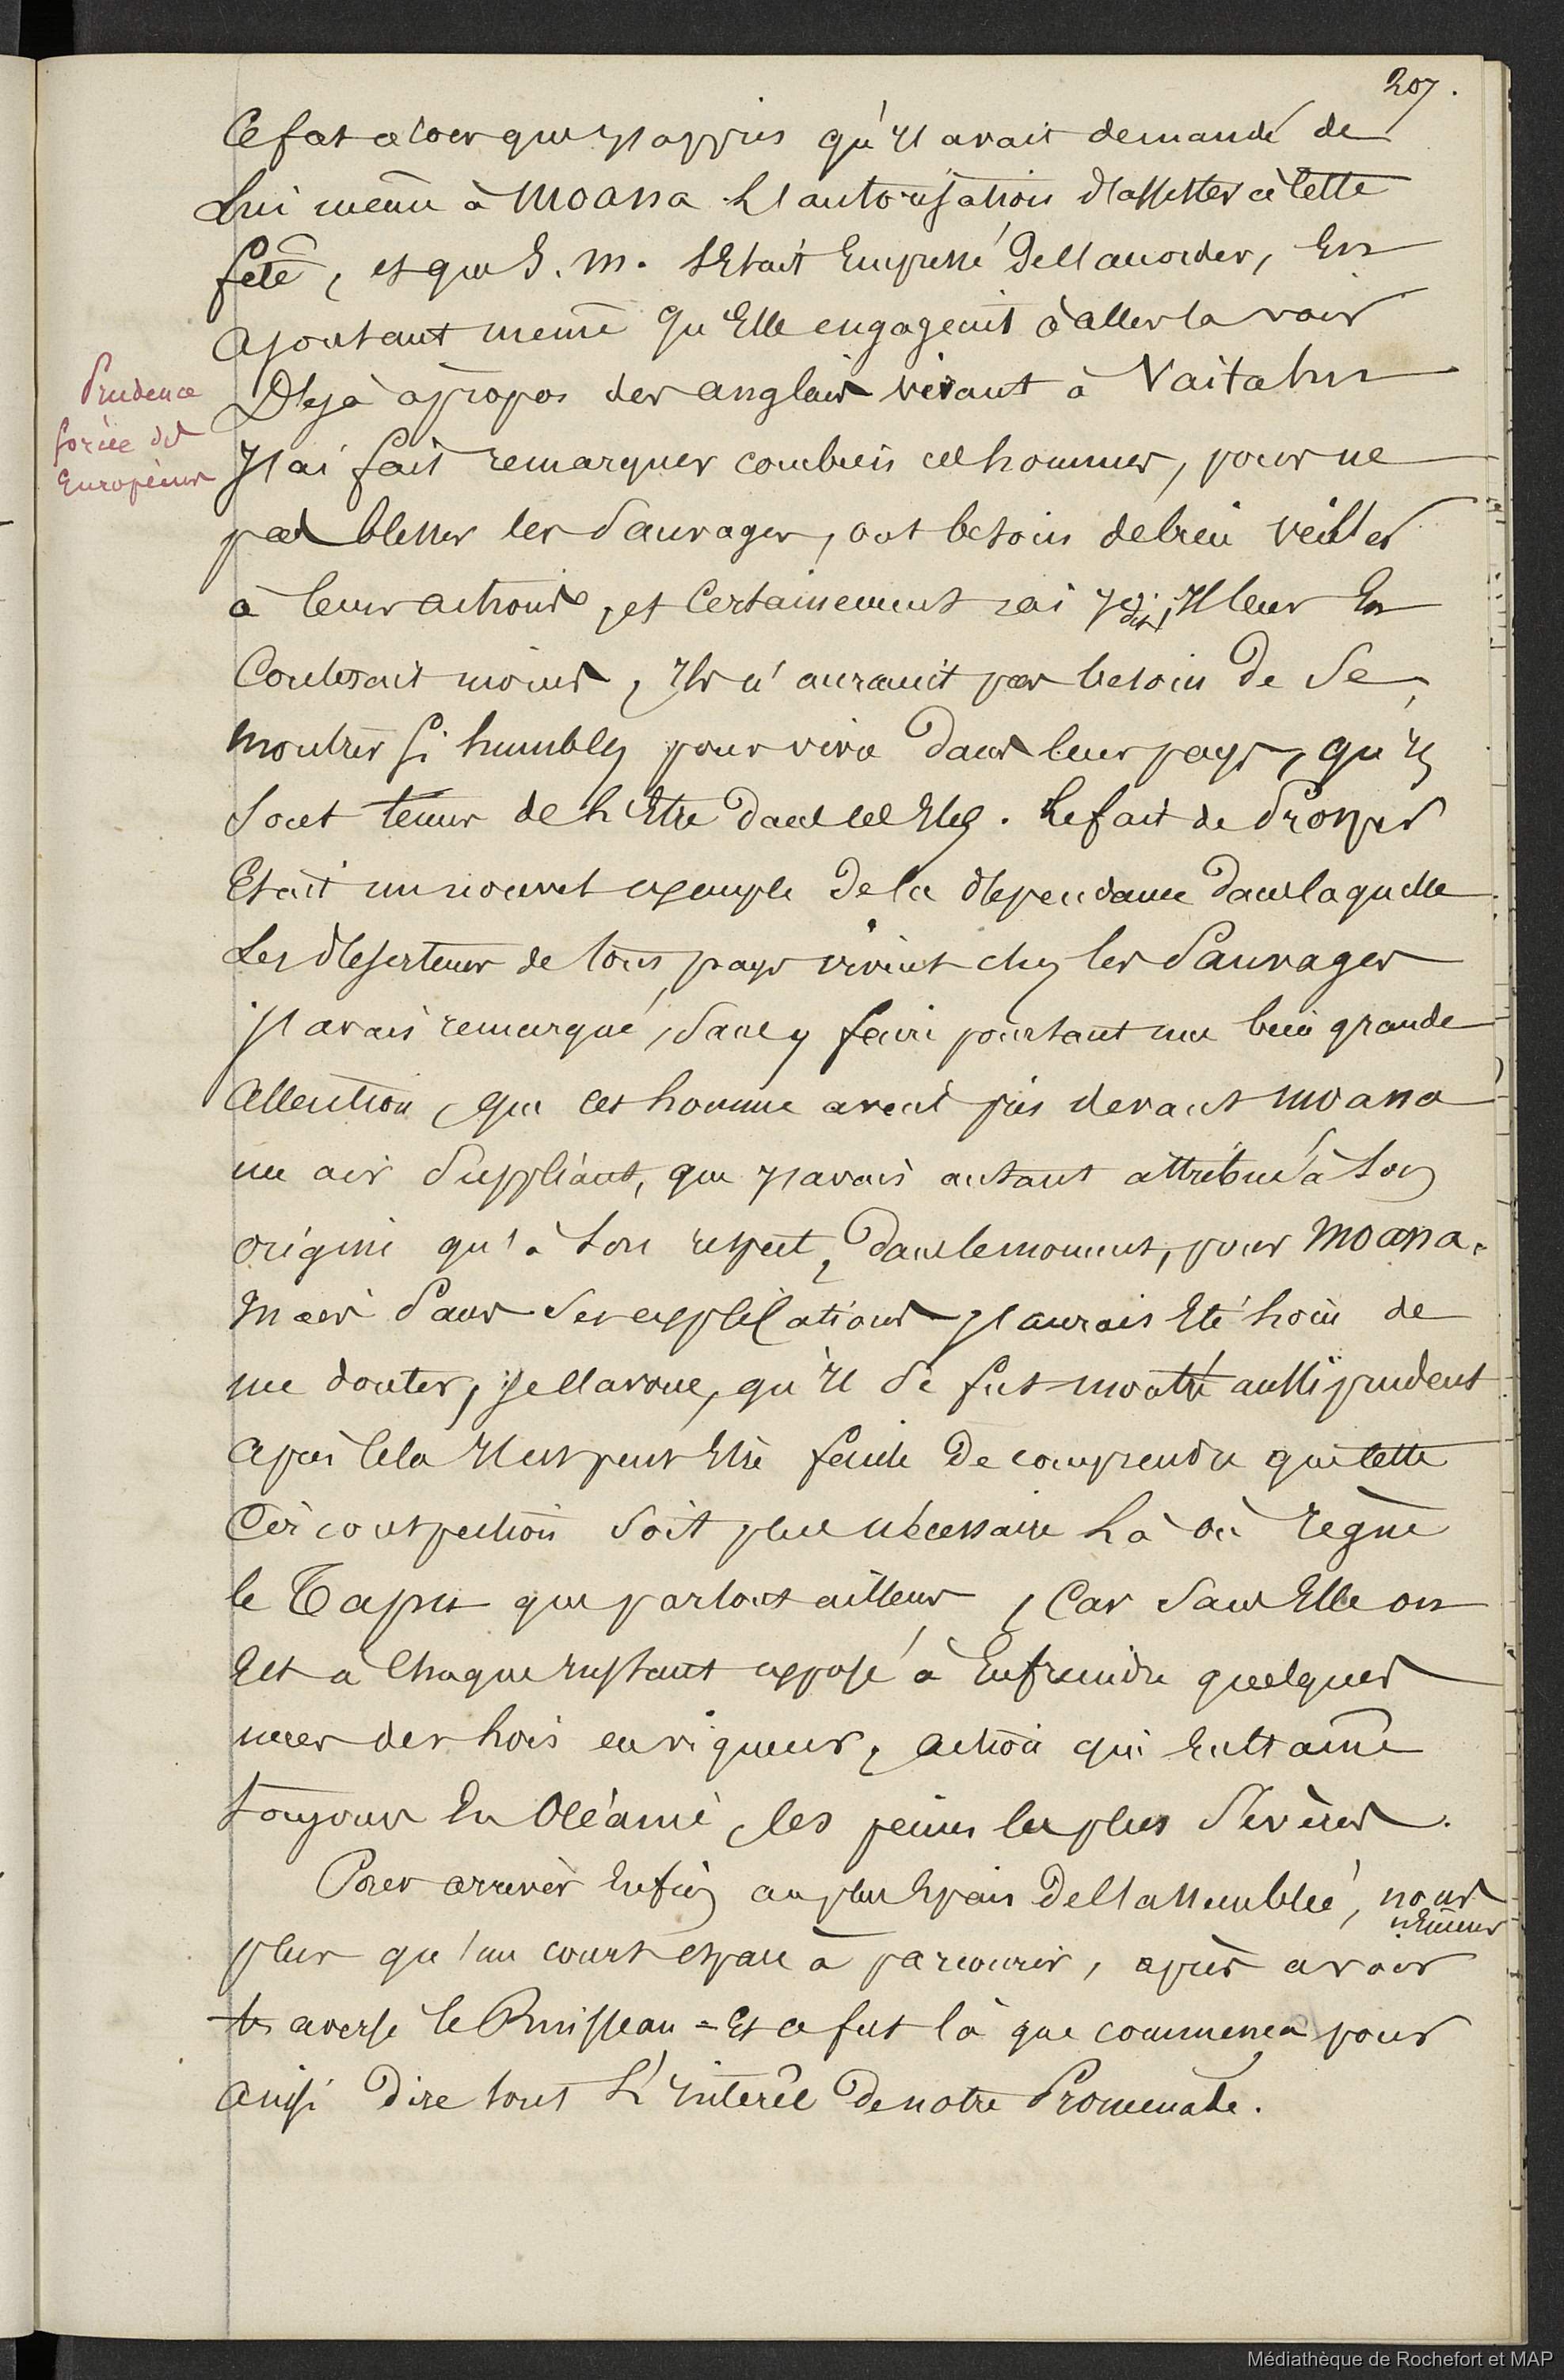 207.
Ce fut alors que j'appris qu'il avait demandé de
Lui même à Moana L'autorisation d'assister à Cette
fête, et que S. M. s'Était Empressé de l'accorder, En
ajoutant même qu'Elle engageait à aller la voir
Prudence
forcée des
Européens
Déjà à propos des anglais vivant à Vaitahu
J'ai fait remarquer combien ces hommes, pour ne
pas blesser les Sauvages, ont besoin de bien veiller
à leurs actions, et Certainement ai je dit, Il leur En
Couterait moins, Ils n'auraient pas besoin de Se
montrer Si humbles pour vivre Dans leur pays, qu'ils
Sont tenus de L'Etre Dans ces Iles. Le fait de Prosper
Etait un nouvel exemple De la dépendance Dans laquelle
Les déserteurs de tous pays vivent chez les Sauvages
J'avais remarqué, Sans y faire pourtant une bien grande
Attention, que cet homme avait pris devant Moana
un air Suppliant, que j'avais autant attribué à Son
origine qu'à Son respect, Dans le moment, pour Moana.
Mais Sans Ses explications j'aurais Eté Loin de
me douter, je l'avoue, qu'il Se fut montré aussi prudent
Après Cela Il est peut Etre facile De comprendre que Cette
Circonspection Soit plus nécessaire Là où règne
le Tapu que partout ailleurs, Car Sans Elle on
Est à Chaque instant exposé à Enfreindre quelques
unes des Lois en vigueur, action qui Entraine
toujours En Océanie, les peines les plus Sévères.
Pour arriver Enfin au plus Epais De l'assemblée, nous
n'Eumes
plus qu'un court espace à parcourir, après avoir
traversé le Ruisseau = Et ce fut là que commença pour
ainsi Dire tout L'intérêt De notre Promenade.
Médiathèque de Rochefort et MAP